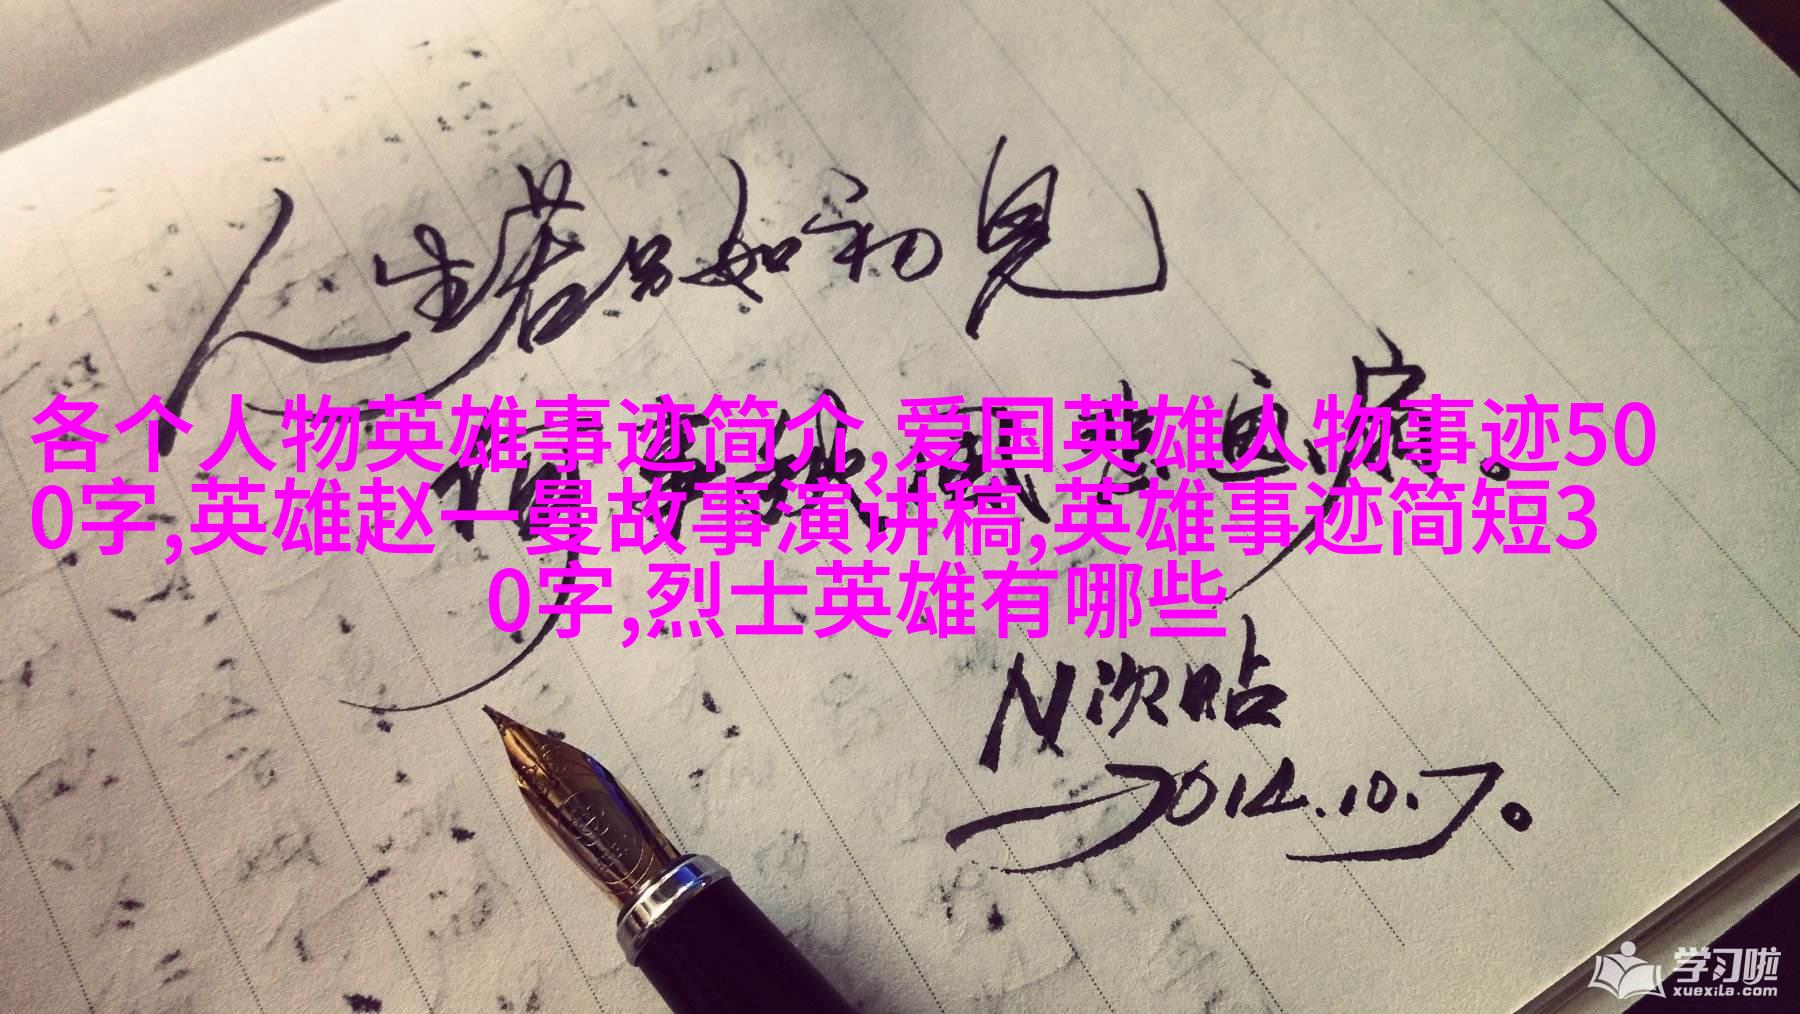 人生若只如初见
各个人物英雄事迹简介,爱国英雄人物事迹50
0字,英雄赵一曼故事演讲稿,英雄事迹简短30
0字,烈士英雄有哪些
N次贴
2014.10.7。
学习啦
xuexila.com